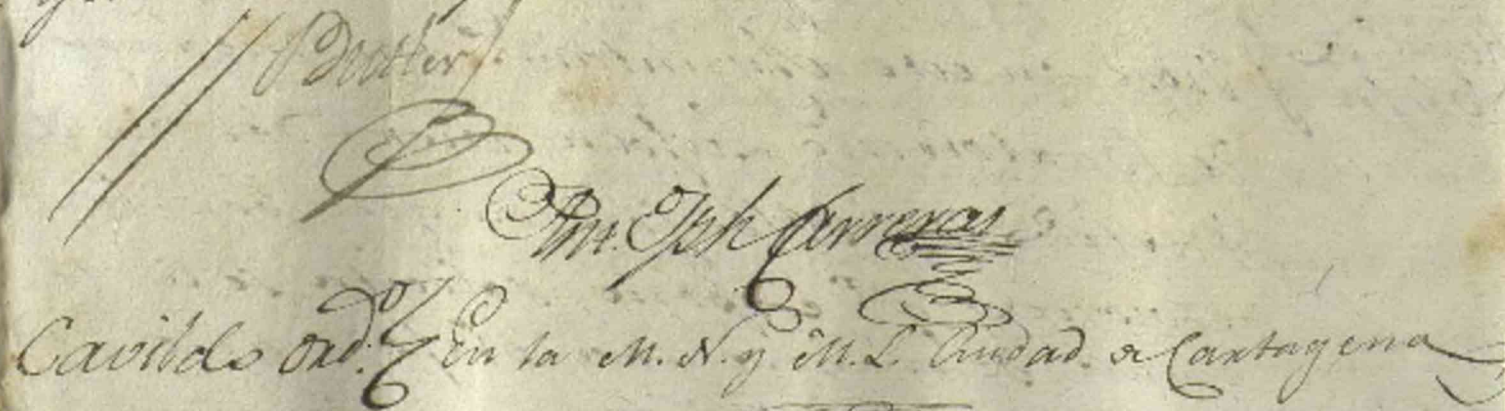 Butler
Ante. Jph Carreras
Cavildo ordº. En la M. N. y M. L. Ciudad de Cartagena